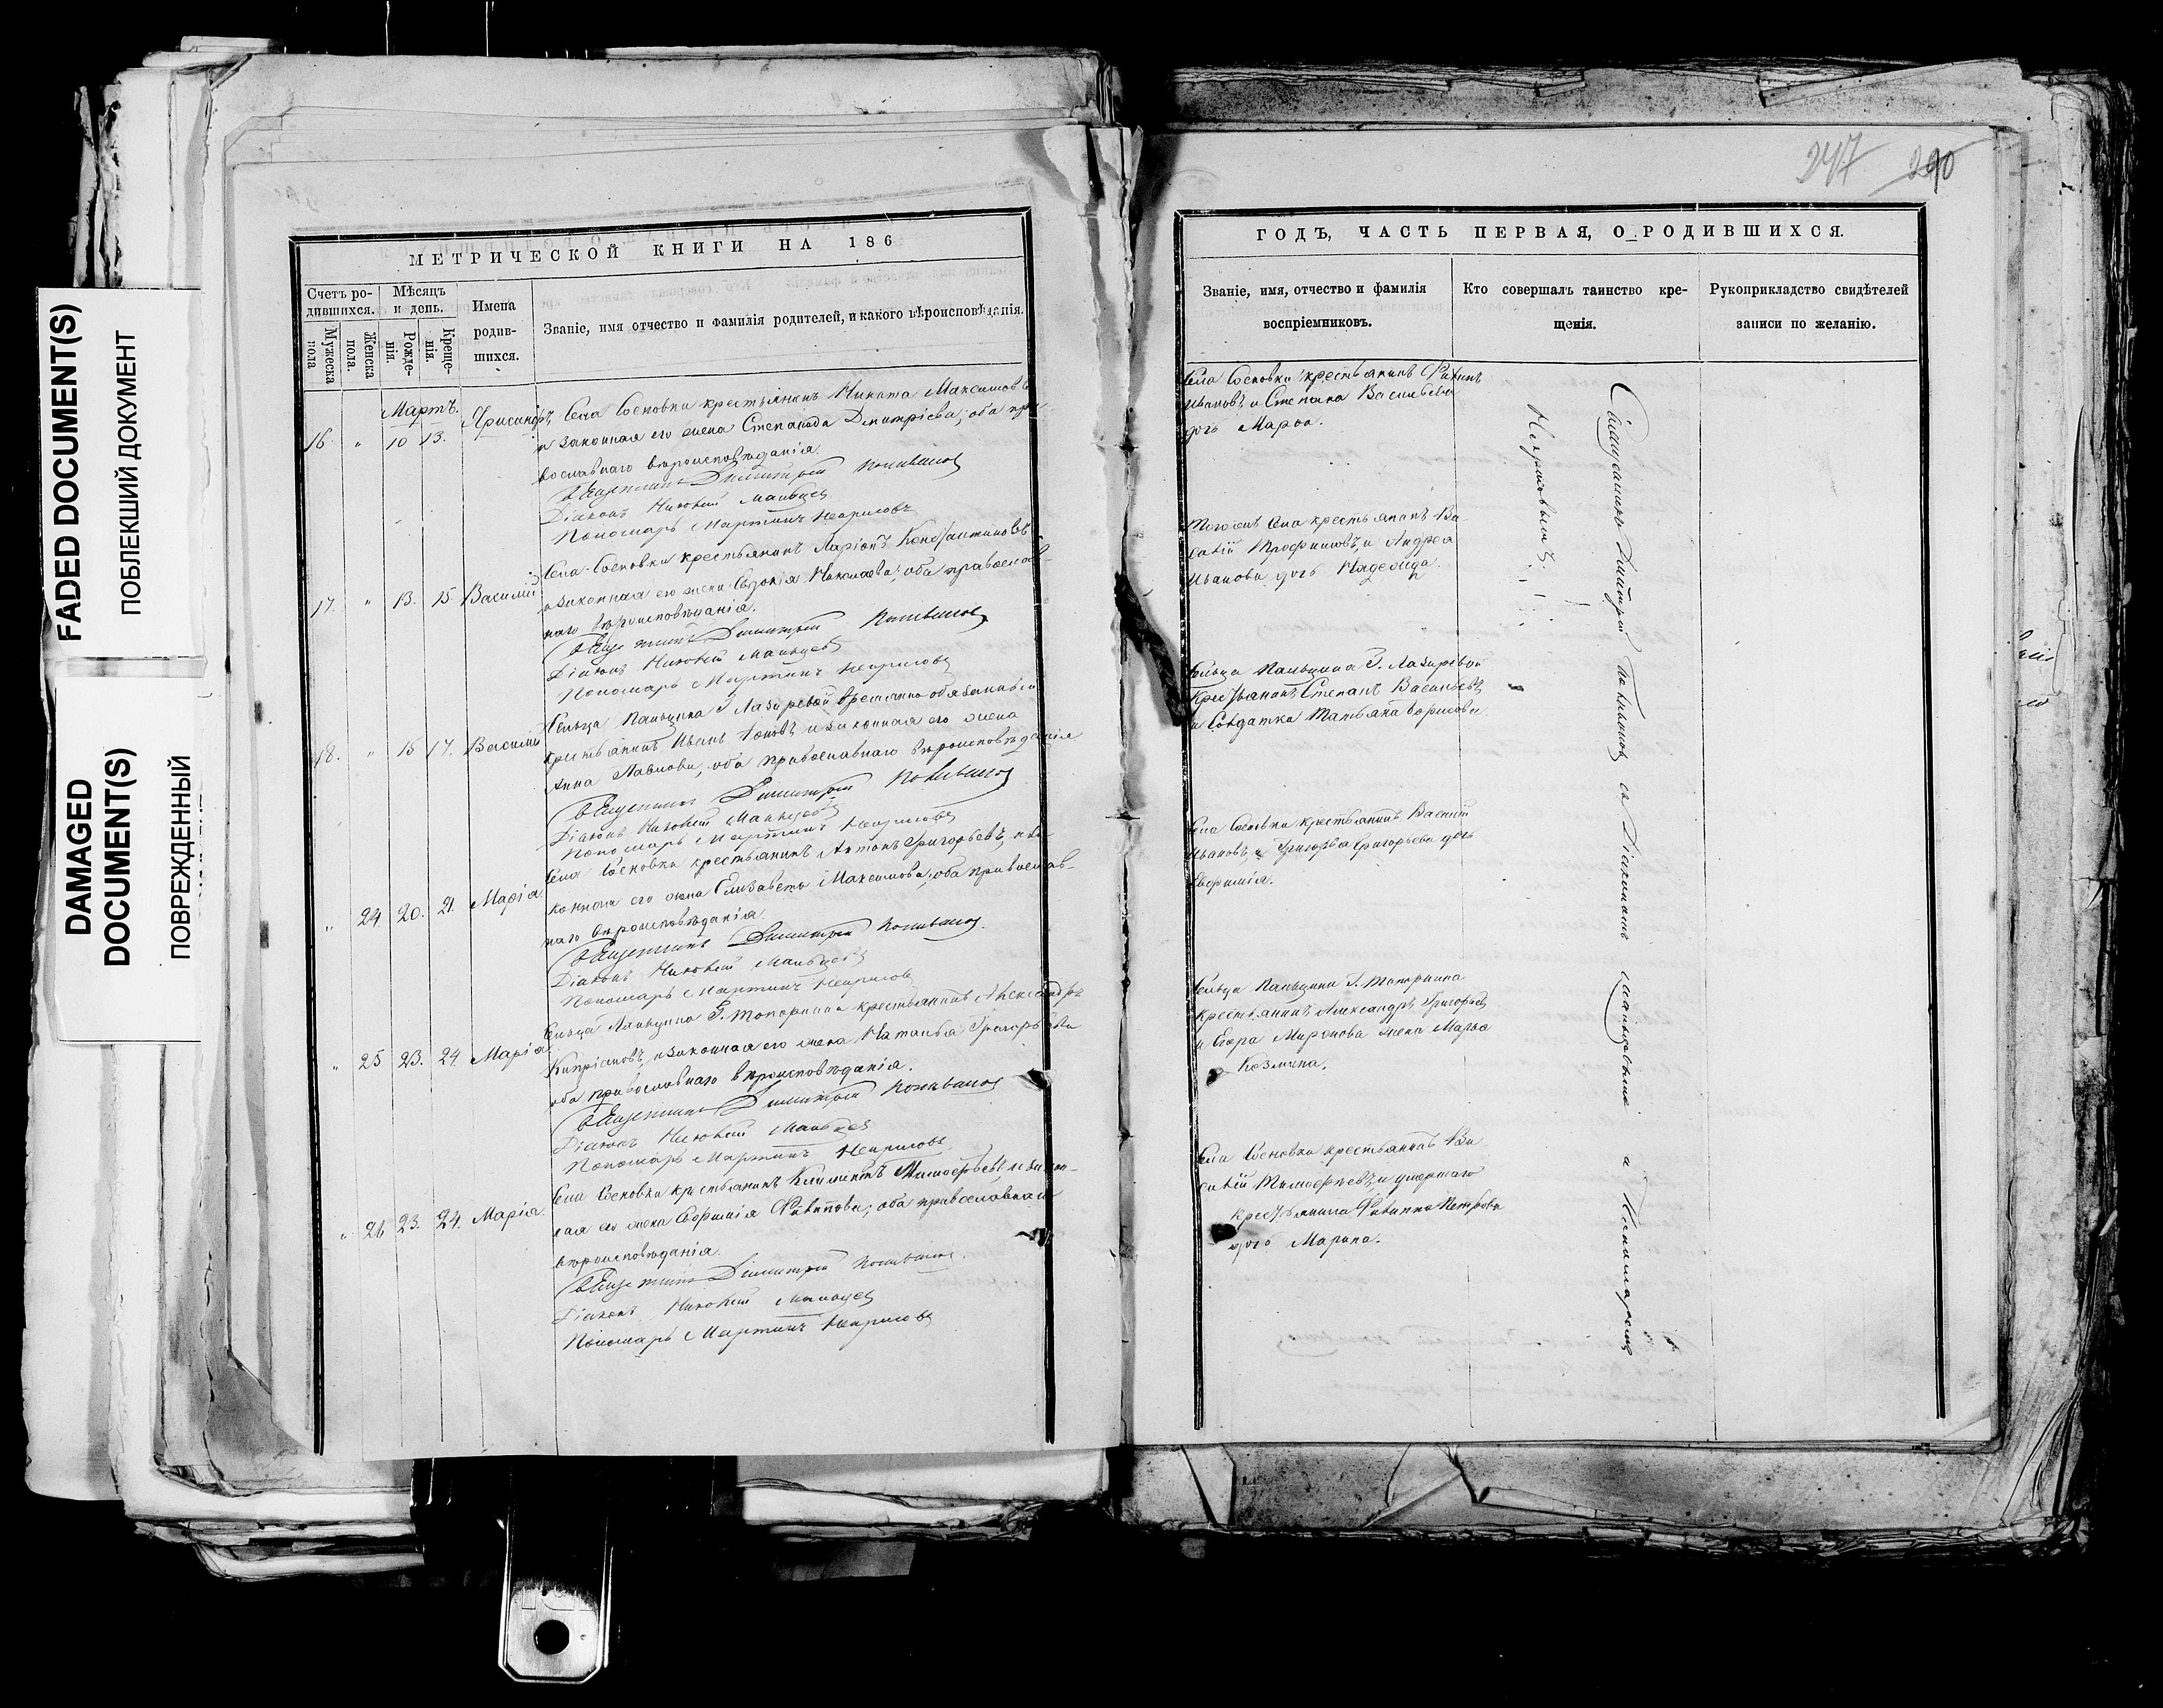 FADED DOCUMENT(S)
ПОБЛЕКШИЙ ДОКУМЕНТ
DAMAGED
DOCUMENT(S)
ПОВРЕЖДЕННЫЙ
МЕТРИЧЕСКОЙ КНИГИ НА 186
Счетъ ро-
дившихся.
Мужеска
пола
Женска
пола.
Мѣсяцъ
и день.
Рожде-
нія.
Креще-
нія.
Имена
родив-
шихся.
Званіе, имя отчество и фамилія родителей, и какого вѣроисповѣданія.
Мартъ.
16. " 10 13.
Села Сосновки крестьянинъ Никита Максимовъ
и законная его жена Степанида Димитріева, оба пра-
вославнаго вѣроисповѣданія.
Священникъ Димитрій
Діаконъ
Пономарь Мартинъ
17. " 13. 15 Василій
Села Сосновки крестьянинъ Ларіонъ Константиновъ
и законная его жена Евдокія Николаева, оба православ-
наго вѣроисповѣданія.
Священникъ Димитрій
Діаконъ
Пономарь Мартинъ
18. " 15 17. Василій
Сельца Паньшина Г. Лазаревой временно обязанный
крестьянинъ Иванъ и законная его жена
Анна Павлова, оба православнаго вѣроисповѣданія
Священникъ Димитрій
Діаконъ
Пономарь Мартинъ
" 24 20. 21. Марія
Села Сосновки крестьянинъ Антонъ Григорьевъ, и за-
конная его жена Елизавета Максимова, оба православ-
наго вѣроисповѣданія.
Священникъ Димитрій
Діаконъ
Пономарь Мартинъ
" 25 23. 24. Марія
Сельца Паньшина Г. Топорнина крестьянинъ Александръ
Кипріановъ, и законная его жена Наталья Григорьева
оба православнаго вѣроисповѣданія.
Священникъ Димитрій
Діаконъ
Пономарь Мартинъ
" 26 23. 24. Марія
Села Сосновки крестьянинъ Климентъ Тимофѣевъ, и закон-
ная его жена Евфимія Филипова, оба православнаго
вѣроисповѣданія.
Священникъ Димитрій
Діаконъ
Пономарь Мартинъ
247 290
ГОДЪ, ЧАСТЬ ПЕРВАЯ, О РОДИВШИХСЯ.
Званіе, имя, отчество и фамилія
воспріемниковъ.
Кто совершалъ таинство кре-
щенія.
Рукоприкладство свидѣтелей
записи по желанію.
Села Сосновки крестьянинъ Филипъ
Ивановъ и Степана Васильева
дочь Марѳа.
Тогоже села крестьянинъ Ва-
силій Трофимовъ, и Андрея
Иванова дочь Надежда.
Сельца Паньшина Г. Лазаревой
Крестьянинъ Степанъ Васильевъ
и Солдатка Татьяна Борисова
Села Сосновки крестьянинъ Василій
Ивановъ, и Григорья Григорьева дочь
Евфимія.
Сельца Паньшина Г. Топорнина
крестьянинъ Александръ Григорьевъ
и Егора Миронова жена Марѳа
Козмина.
Села Сосновки крестьянинъ Ва-
силій Тимофѣевъ, и умершаго
крестьянина Филиппа Петрова
дочь Марина.
Священникъ Димитрій съ Діакономъ а Пономаремъ